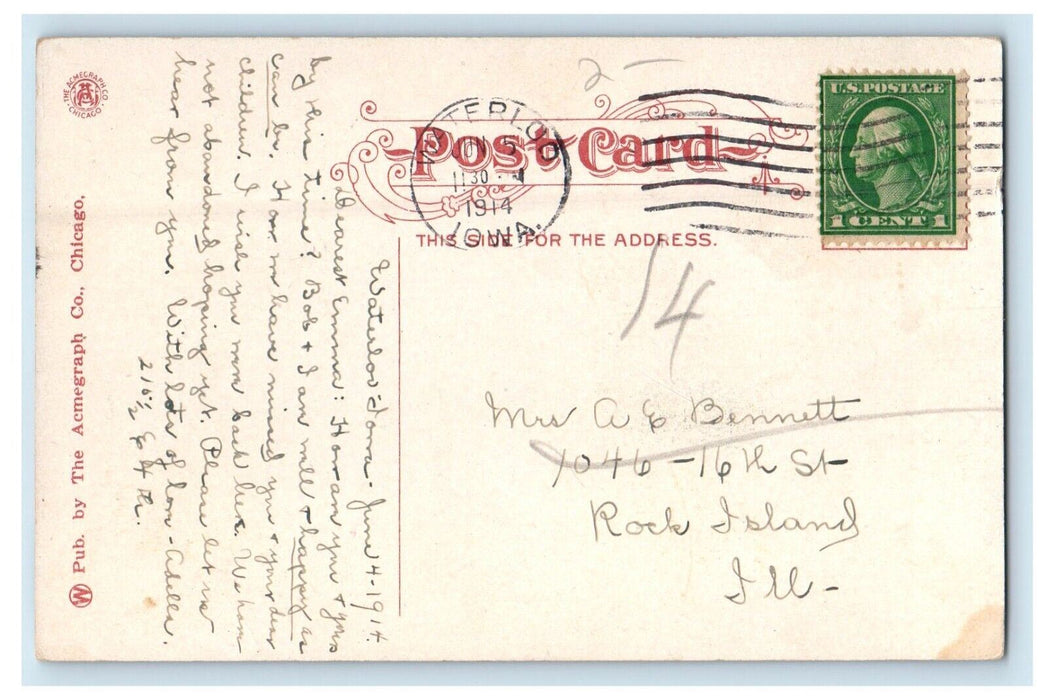 THE ACMEGRAPH CO.
CHICAGO
W Pub. by The Acmegraph Co., Chicago,
Post Card
THIS SIDE FOR THE ADDRESS.
WATERLOO
JUN 5
11 30
1914
IOWA.
U.S. POSTAGE
1 CENT 1
2 -
14
Waterloo Iowa - June 4 - 1914.
Dearest Emma: How are you & yours
by this time? Bob & I are well & happy as
can be. How we have missed you & your dear
children. I wish you were back here. We have
not abandoned hoping yet. Please let us
hear from you. With lots of love - Adella.
216½ E 4 th.
Mrs A E Bennett
1046 - 16th St
Rock Island
Ill -